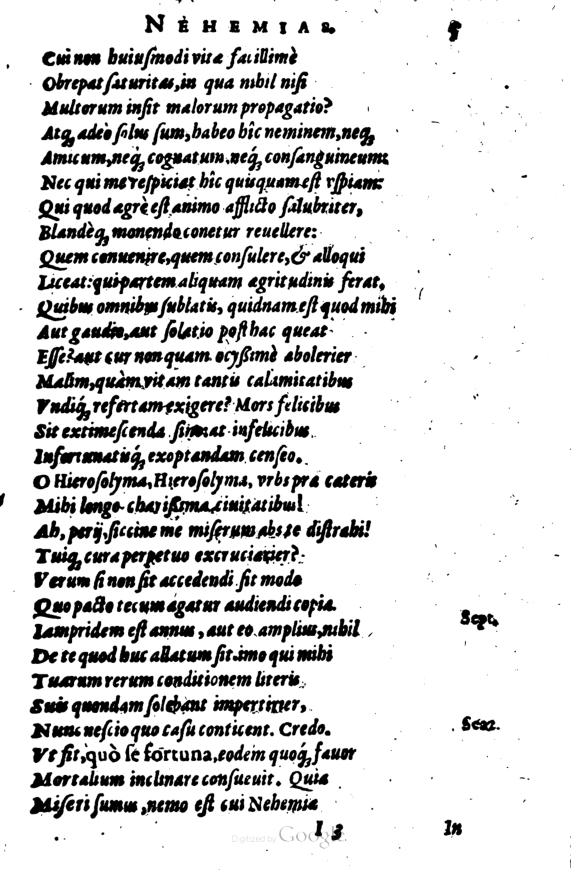 NEHEMIAS.
Cui non huiusmodi vitæ facillimè
Obrepat saturitas, in qua nihil nisi
Multorum insit malorum propagatio?
Atq; adeò solus sum, habeo hîc neminem, neq;
Amicum, neq; cognatum, neq; consanguineum:
Nec qui me respiciat hîc quisquam est vspiam:
Qui quod ægrè est animo afflicto salubriter,
Blandèq; monendo conetur reuellere:
Quem conuenire, quem consulere, & alloqui
Liceat: qui partem aliquam ægritudinis ferat,
Quibus omnibus sublatis, quidnam est quod mihi
Aut gaudio, aut solatio posthac queat
Esse? aut cur non quam ocyßimè abolerier
Malim, quàm vitam tantis calamitatibus
Vndiq; refertam exigere? Mors felicibus
Sit extimescenda, sit infelicibus
Infortunatisq; exoptandam censeo.
O Hierosolyma, Hierosolyma, vrbs præ cæteris
Mihi longè charißima ciuitatibus!
Ah, perij, siccine me miserum abs te distrahi!
Tuiq; cura perpetuo excruciarier?
Verum si non sit accedendi sit modo
Quo pacto tecum agatur audiendi copia.
Iampridem est annus, aut eo amplius, nihil Sept.
De te quod huc allatum sit. imo qui mihi
Tuarum rerum conditionem literis
Suis quondam solebant impertirier,
Nunc nescio quo casu conticent. Credo. Senar.
Vt fit, quò se fortuna, eodem quoq; fauor
Mortalium inclinare consueuit. Quia
Miseri sumus, nemo est cui Nehemiæ
I 3 In
Digitized by Google